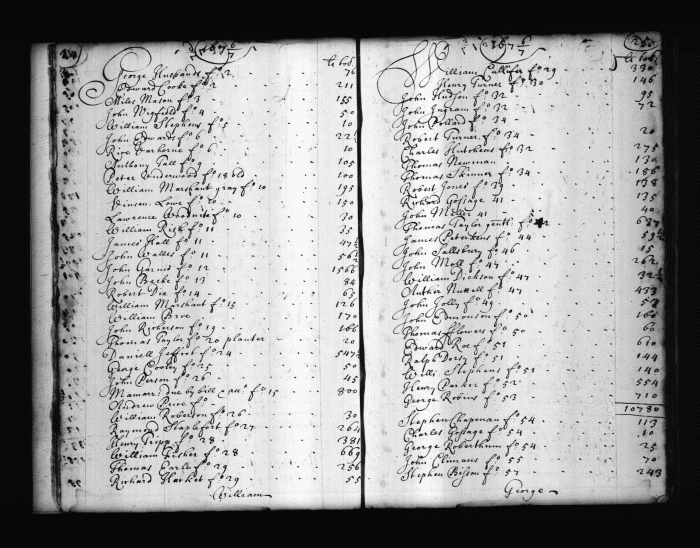 1676/7
lb tob
George Husbands fo 2 76
Edward Cooke fo 2 211
Miles Mason fo 3 155
John Wigfield fo 4 50
William Stephens fo 5 10
John Edwards fo 6
fo 6 10
Anthony Tall fo 9 105
Peter Underwood fo 18 old 100
William Marshant gray fo 10 195
Lowe fo 10 150
Lawrence fo 10 30
William Risk fo 11 35
James Hall fo 11
John Walles fo 11
John fo 12 1566
John Backe fo 13 84
Robert fo 14 65
William Marshant fo 15 126
William 170
John Rickerson fo 19 166
Thomas Taylor fo 20 planter 20
Daniell fo 24
George Cooley fo 25 50
John Person fo 26 45
due by bill fo 15 800
Andrew
William Roberson fo 26 30
Raymond Staplefort fo 27 264
Henry Tripp fo 28 381
William Fisher fo 28 669
Thomas Earle fo 29 256
Richard Hacket fo 29 55
William
1676/7
25
lb tob
William Cullifer fo 29 330
Henry Turner fo 30 146
John Hudson fo 32 95
John Ingram fo 32 72
John Pollard fo 34
Robert Turner fo 34 20
Charles Hutchens fo 32 275
Thomas Newman 130
Thomas Skinner fo 34 186
Robert Jones fo 39 138
Richard Gossage 41 135
John 41 40
Thomas Taylor gentl. fo 637
James fo 44
John Sallsbury fo 46 15
John Moll fo 47 262
William Dickson fo 47
Nuttell fo 47 433
John Jolly fo 49
John Edmonson fo 50 160
Thomas Flowers fo 50 60
Edward Roe fo 51 670
Ralph Dorsy fo 51 144
Willi. Stephens fo 51 140
Henry Parker fo 52 554
George Robins fo 53 710
10780
Stephen Chapman fo 54 113
Charles Gossage fo 54
George Robertham fo 54 25
John Climans fo 55 70
Stephen Bisson fo 57 243
George